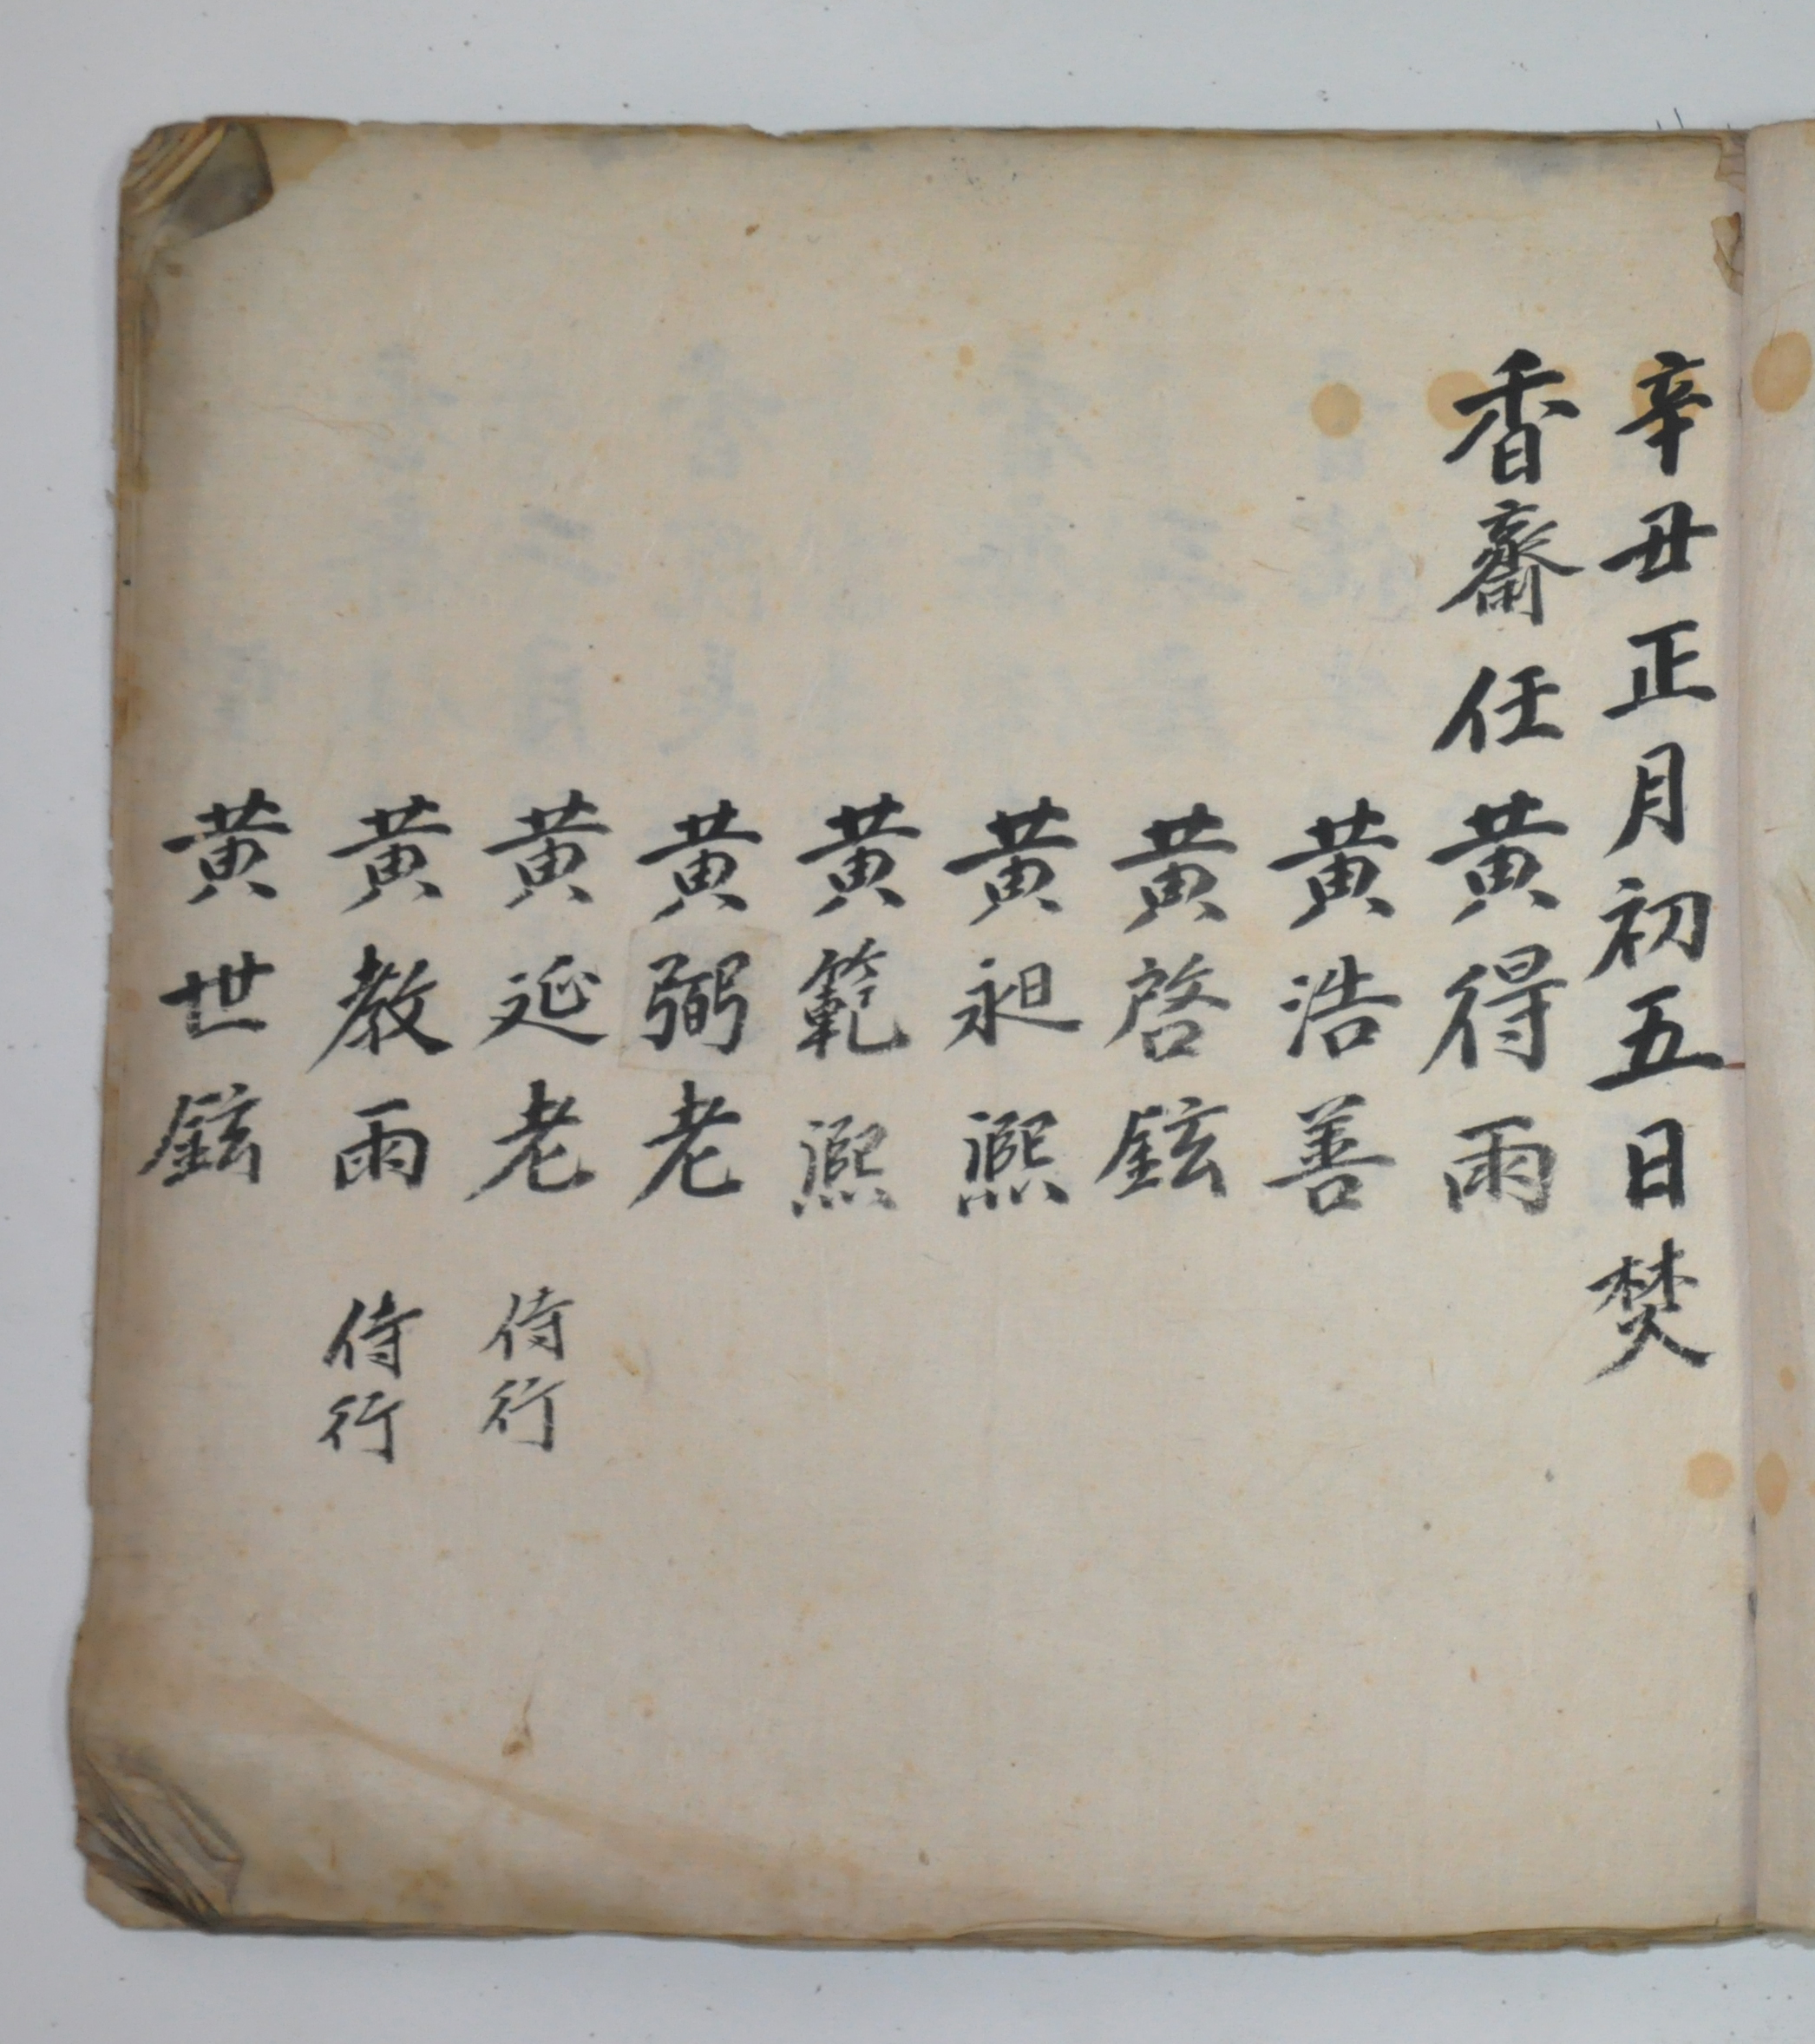 辛丑正月初五日焚
香齋任黃得雨
黃浩善
黃啓鉉
黃昶凞
黃範凞
黃弼老
黃延老 侍行
黃教雨 侍行
黃世鉉